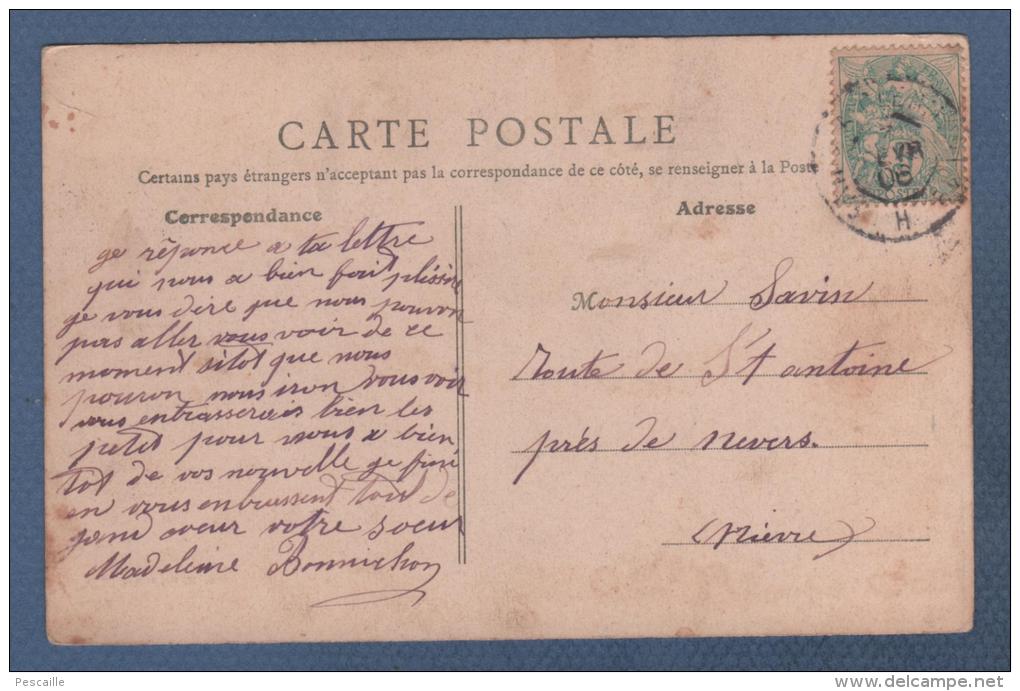 CARTE POSTALE
Certains pays étrangers n'acceptent pas la correspondance de ce côté, se renseigner à la Poste
Correspondance
Adresse
ge réponce a ta lettre
qui nous a bien fait plésire
ge vous dire que nous pouvon
pas aller vous voir de ce
moment sitot que nous
pouron nous iron vous voir
vous entrasserais bien les
petit pour nous a bien
tot de vos nouvelle ge fini
en vous enbrassent tous de
gand coeur votre soeur
Madeleine Bonnichon
Monsieur Savin
route de St antoine
prés de nevers.
(Nièvre)
06
H
Pescaille
www.delcampe.net